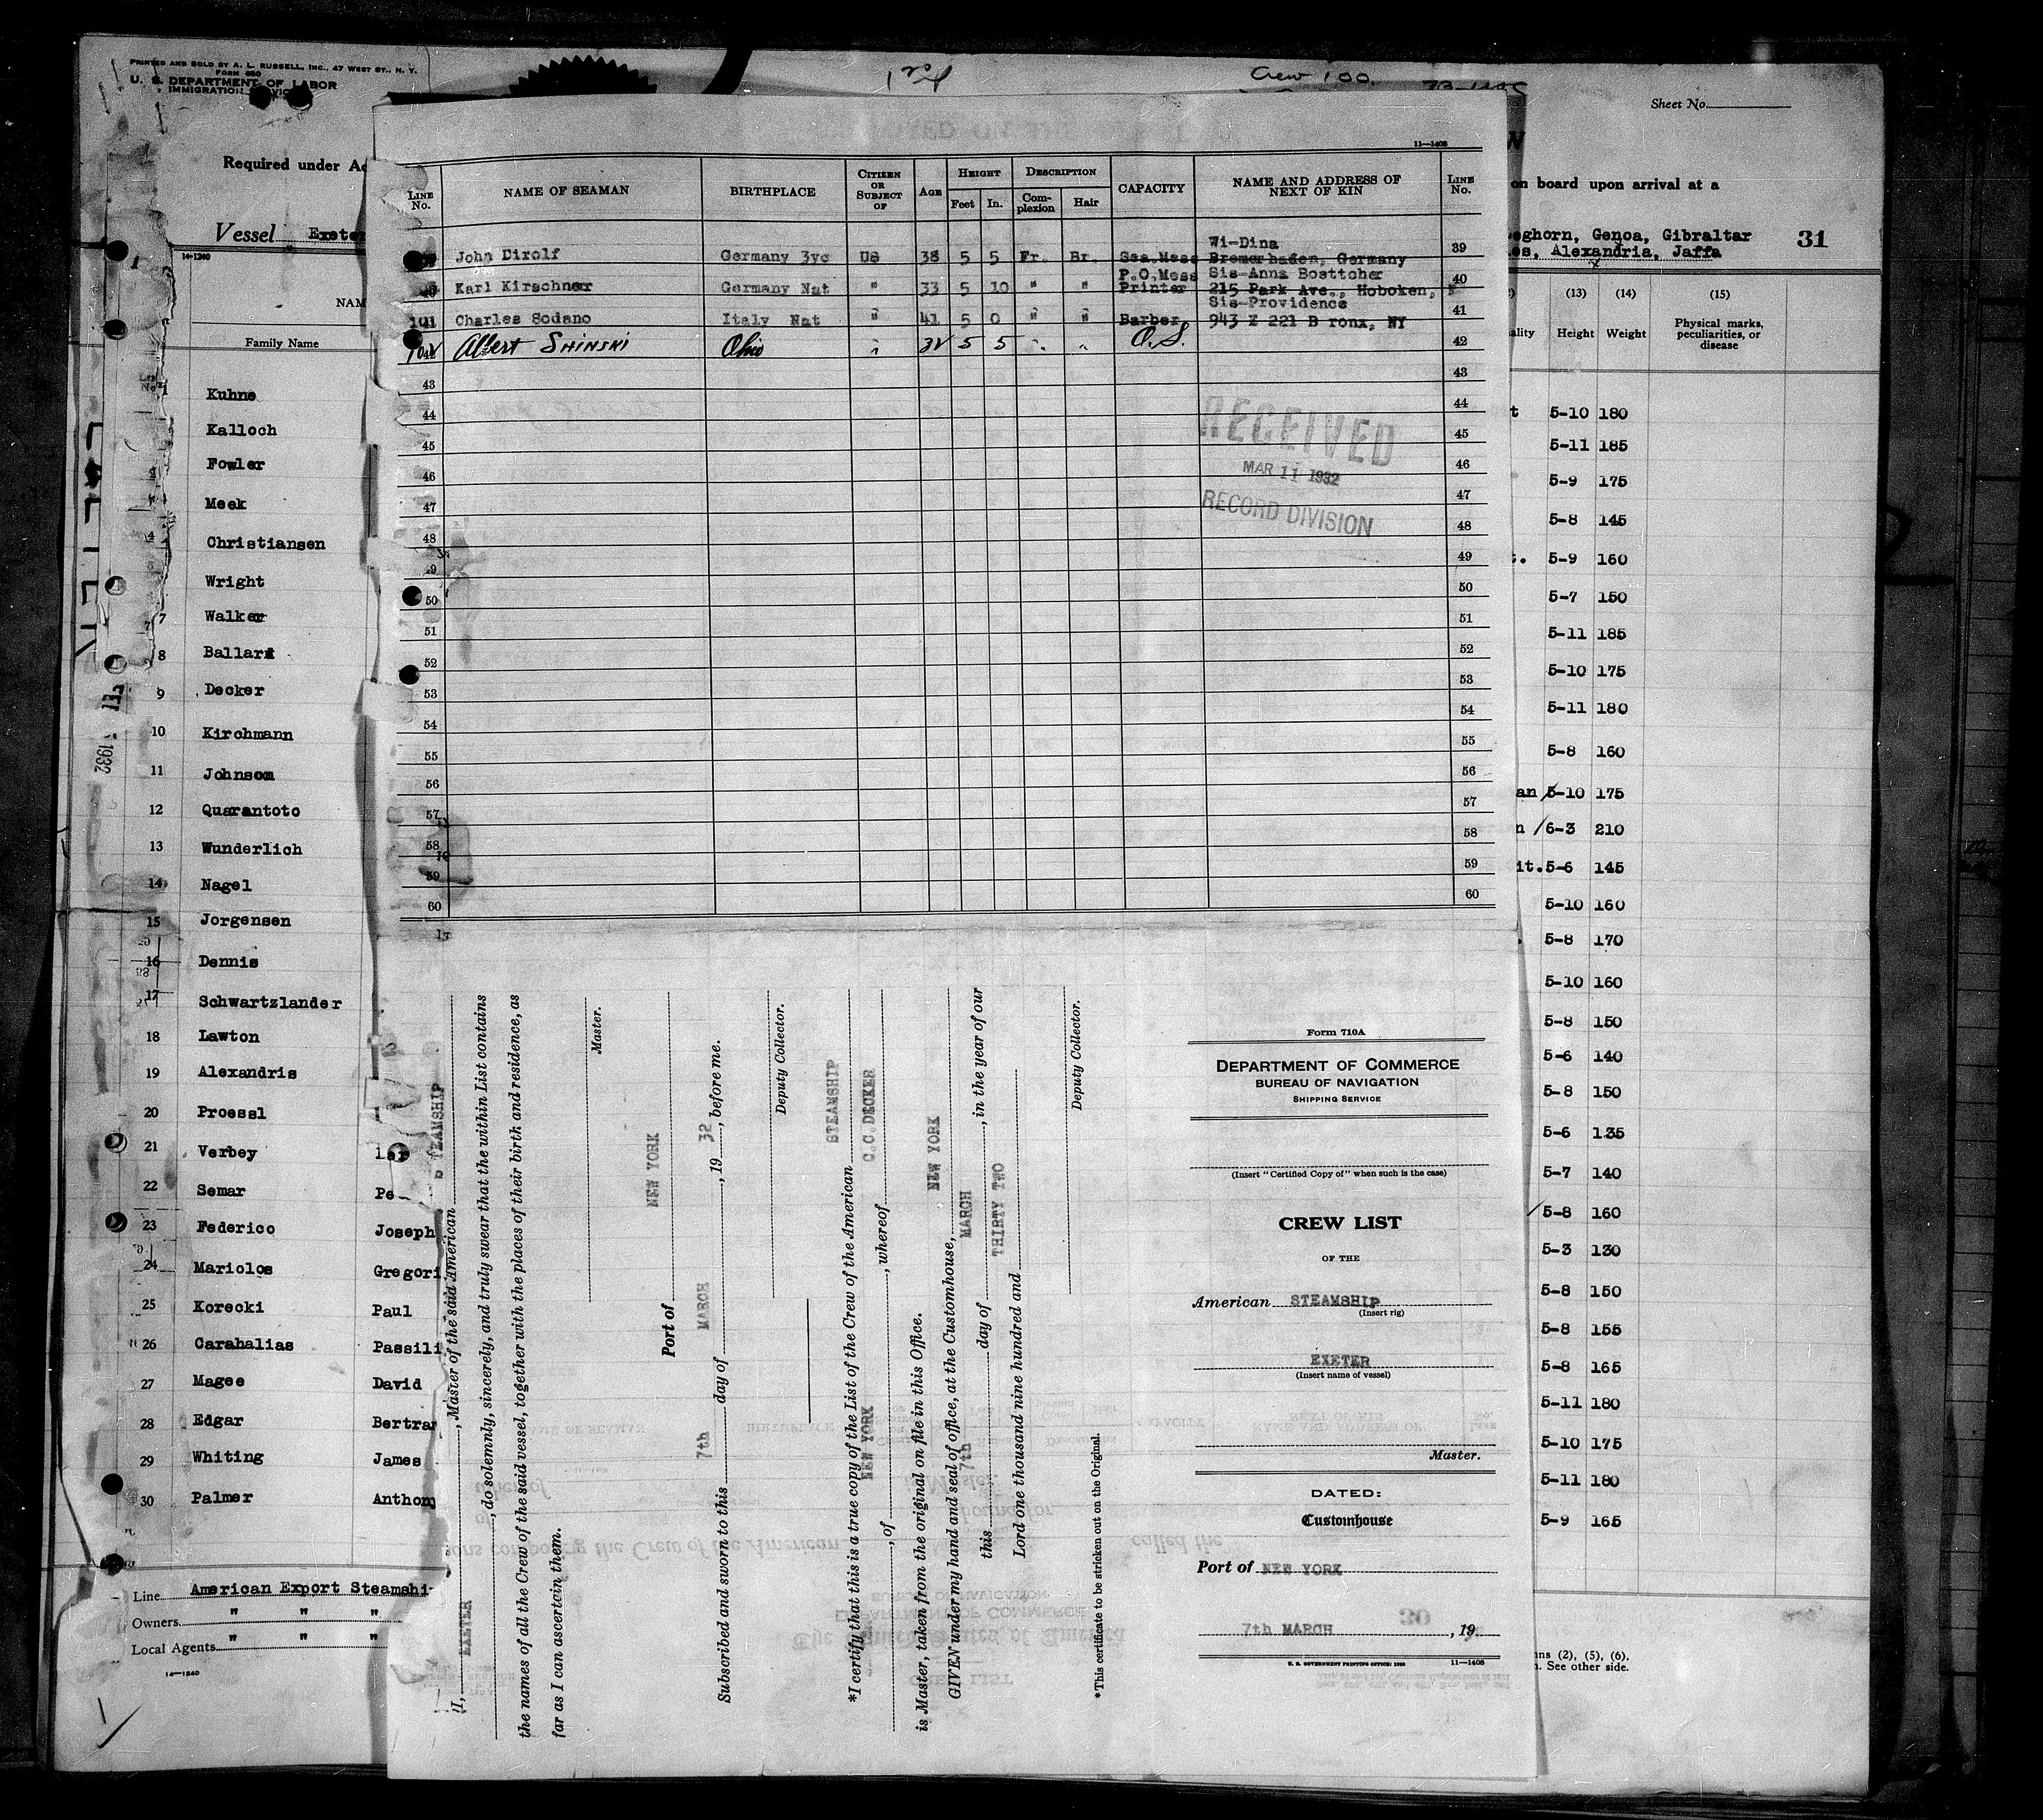 PRINTED AND SOLD BY A. L. RUSSELL, INC., 47 WEST ST., N. Y.
FORM 680
U. S. DEPARTMENT OF LABOR
IMMIGRATION
Crew 100.
Sheet No.
Required under
on board upon arrival at a
Vessel Exeter
Leghorn, Genoa, Gibraltar
Alexandria, Jaffa
31
14-1240
Family Name
(13) (14) (15)
Height Weight Physical marks, peculiarities, or disease
11—1408
LINE No. NAME OF SEAMAN BIRTHPLACE CITIZEN OR SUBJECT OF AGE HEIGHT Feet In. DESCRIPTION Complexion Hair CAPACITY NAME AND ADDRESS OF NEXT OF KIN LINE No.
John Dirolf Germany 3yc US 38 5 5 Fr. Br. Sea.Mess Wi-Dina Bremerhaden, Germany 39
Karl Kirschner Germany Nat " 33 5 10 " " P.O.Mess Printer Sis-Anna Bosttcher 215 Park Ave., Hoboken, 40
101 Charles Sodano Italy Nat " 41 5 0 " " Barber Sis-Providence 943 E 221 B ronx, NY 41
Albert SHINSKI Ohio " 5 5 " " O.S. 42
43 43
44 44
45 45
46 46
47 47
48 48
49 49
50 50
51 51
52 52
53 53
54 54
55 55
56 56
57 57
58 58
59 59
60 60
RECEIVED
MAR 11 1932
RECORD DIVISION
Kuhne 5-10 180
Kalloch 5-11 185
Fowler 5-9 175
Meek 5-8 145
Christiansen 5-9 160
Wright 5-7 150
7 Walker 5-11 185
8 Ballard 5-10 175
9 Decker 5-11 180
10 Kirchmann 5-8 160
11 Johnson 5-10 175
12 Quarantoto 6-3 210
13 Wunderlich 5-6 145
14 Nagel 5-10 160
15 Jorgensen 5-8 170
16 Dennis 5-10 160
17 Schwartzlander 5-8 150
18 Lawton 5-6 140
19 Alexandris 5-8 150
20 Proessl 5-6 135
21 Verbey 5-7 140
22 Semar 5-8 160
23 Federico Joseph 5-3 130
24 Mariolos Gregori 5-8 150
25 Korecki Paul 5-8 155
26 Carahalias Passili 5-8 165
27 Magee David 5-11 180
28 Edgar Bertra 5-10 175
29 Whiting James 5-11 180
30 Palmer Anthon 5-9 165
1932
Line American Export Steamshi
Owners " " "
Local Agents " " "
14—1240
(2), (5), (6).
See other side.
I, , Master of the said American STEAMSHIP
EXETER , do solemnly, sincerely, and truly swear that the within List contains
the names of all the Crew of the said vessel, together with the places of their birth and residence, as
far as I can ascertain them.
Master.
Port of NEW YORK
Subscribed and sworn to this 7th day of MARCH , 19 32 , before me.
Deputy Collector.
*I certify that this is a true copy of the List of the Crew of the American STEAMSHIP
, of NEW YORK , whereof C.C.DECKER
is Master, taken from the original on file in this Office.
GIVEN under my hand and seal of office, at the Customhouse, NEW YORK
this 7th day of MARCH , in the year of our
Lord one thousand nine hundred and THIRTY TWO
Deputy Collector.
*This certificate to be stricken out on the Original.
Form 710A
DEPARTMENT OF COMMERCE
BUREAU OF NAVIGATION
SHIPPING SERVICE
(Insert "Certified Copy of" when such is the case)
CREW LIST
OF THE
American STEAMSHIP
(Insert rig)
EXETER
(Insert name of vessel)
Master.
DATED:
Customhouse
Port of NEW YORK
7th MARCH , 19
U. S. GOVERNMENT PRINTING OFFICE: 11—1408